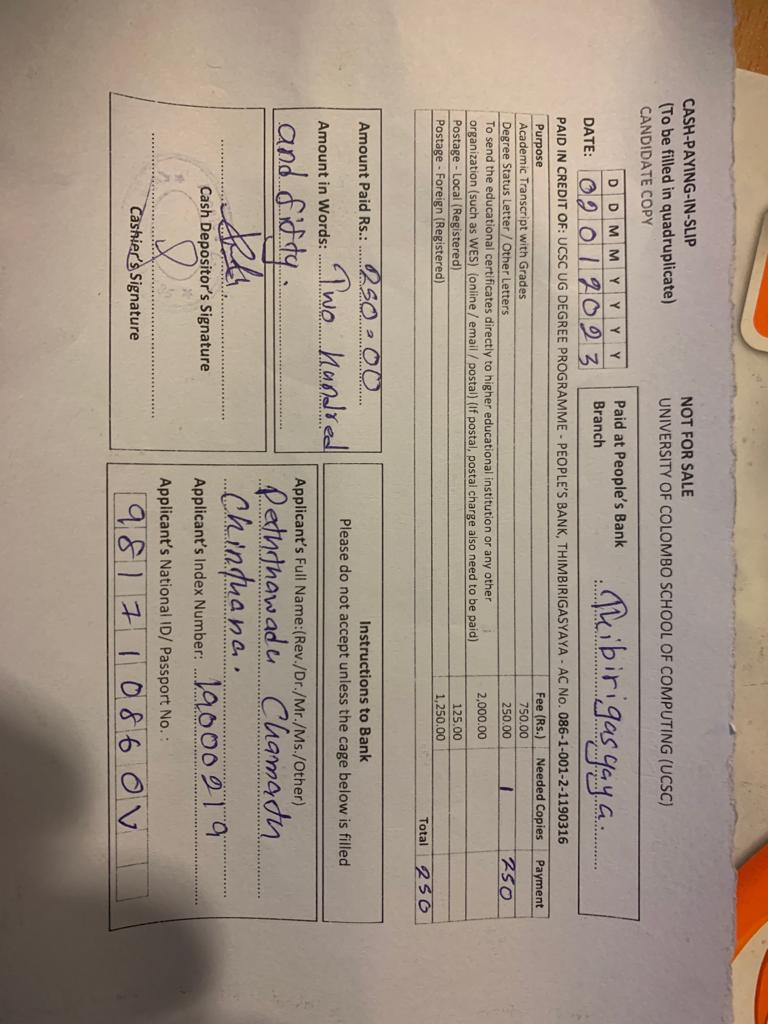 CASH-PAYING-IN-SLIP
(To be filled in quadruplicate)
CANDIDATE COPY
NOT FOR SALE
UNIVERSITY OF COLOMBO SCHOOL OF COMPUTING (UCSC)
D D M M Y Y Y Y
DATE: 0 2 0 1 2 0 2 3
Paid at People's Bank
Branch Thibirigasyaya.
PAID IN CREDIT OF: UCSC UG DEGREE PROGRAMME - PEOPLE'S BANK, THIMBIRIGASYAYA - AC No. 086-1-001-2-1190316
Purpose Fee (Rs.) Needed Copies Payment
Academic Transcript with Grades 750.00
Degree Status Letter / Other Letters 250.00 1 250
To send the educational certificates directly to higher educational institution or any other
organization (such as WES) (online / email / postal) (If postal, postal charge also need to be paid) 2,000.00
Postage - Local (Registered) 125.00
Postage - Foreign (Registered) 1,250.00
Total 250
Amount Paid Rs.: 250=00
Amount in Words: Two hundred
and fifty.
Cash Depositor's Signature
Cashier's Signature
Instructions to Bank
Please do not accept unless the cage below is filled
Applicant's Full Name:(Rev./Dr./Mr./Ms./Other)
Peththawadu Chamath
Chinthana.
Applicant's Index Number: 19000219
Applicant's National ID/ Passport No. :
9 8 1 7 1 0 8 6 0 V